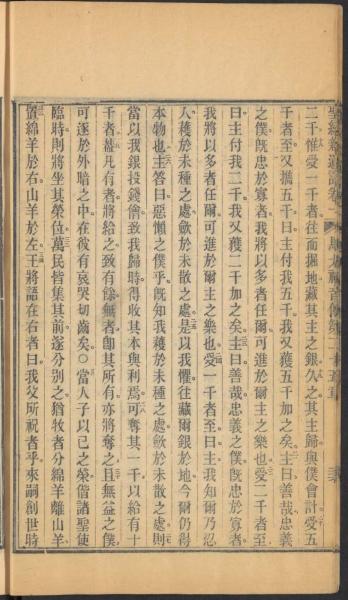 聖經新遺詔卷一 馬太福音傳第二十五章
二千惟受一千者往而掘地藏其主之銀久之其主歸與僕會計受五
千者至又攜五千曰主付我五千我又獲五千加之矣主曰善哉忠義
之僕既忠於寡者我將以多者任爾可進於爾主之樂也受二千者至
曰主付我二千我又獲二千加之矣主曰善哉忠義之僕既忠於寡者
我將以多者任爾可進於爾主之樂也受一千者至曰主我知爾乃忍
人穫於未種之處斂於未散之處是以我懼往藏爾銀於地今爾仍得
本物也主答曰惡懶之僕乎既知我穫於未種之處斂於未散之處則
當以我銀投錢舖致我歸時得收其本與利焉可奪其一千以給有十
千者蓋凡有者將給之致有餘無者卽其所有亦將奪之且無益之僕
可逐於外暗之中在彼有哀哭切齒矣○當人子以己之榮偕諸聖使
臨時則將坐其榮位萬民皆集其前遂分別之猶牧者分綿羊離山羊
置綿羊於右山羊於左王將語在右者曰我父所祝者乎來嗣創世時